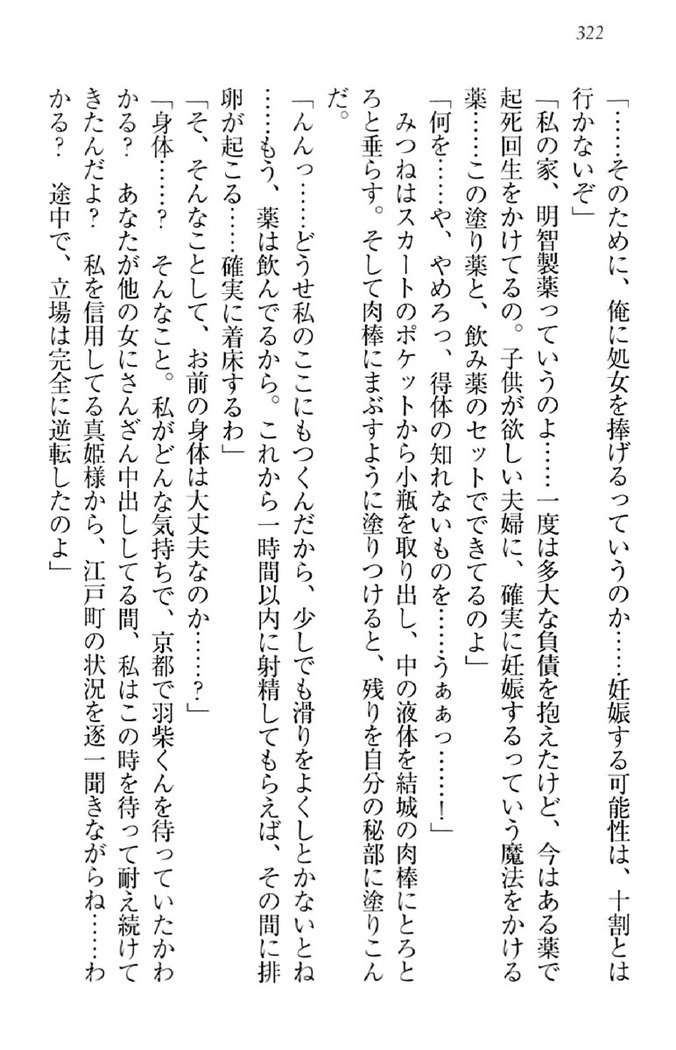 322
「……そのために、俺に処女を捧げるっていうのか……妊娠する可能性は、十割とは
行かないぞ」
「私の家、明智製薬っていうのよ……一度は多大な負債を抱えたけど、今はある薬で
起死回生をかけてるの。子供が欲しい夫婦に、確実に妊娠するっていう魔法をかける
薬……この塗り薬と、飲み薬のセットでできてるのよ」
「何を……や、やめろっ、得体の知れないものを……うぁぁっ……！」
みつねはスカートのポケットから小瓶を取り出し、中の液体を結城の肉棒にとろと
ろと垂らす。そして肉棒にまぶすように塗りつけると、残りを自分の秘部に塗りこん
だ。
「んんっ……どうせ私のここにもつくんだから、少しでも滑りをよくしとかないとね
……もう、薬は飲んでるから。これから一時間以内に射精してもらえば、その間に排
卵が起こる……確実に着床するわ」
「そ、そんなことして、お前の身体は大丈夫なのか……？」
「身体……？　そんなこと。私がどんな気持ちで、京都で羽柴くんを待っていたかわ
かる？　あなたが他の女にさんざん中出ししてる間、私はこの時を待って耐え続けて
きたんだよ？　私を信用してる真姫様から、江戸町の状況を逐一聞きながらね……わ
かる？　途中で、立場は完全に逆転したのよ」